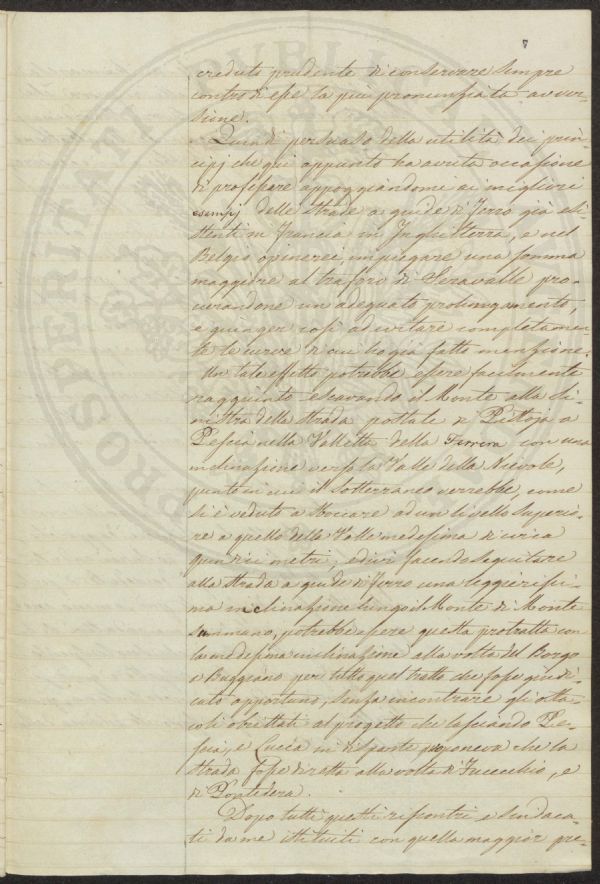 7
creduto prudente di conservare sempre
contro di esse la più pronunziata avver-
sione.
Quindi persuaso della utilità dei prin-
cipj che qui appunto ho avuto occasione
di professare appoggiandomi ai migliori
esempj delle strade a guide di ferro già esi-
stenti in Francia in Inghilterra, e nel
Belgio opinerei, impiegare una somma
maggiore al traforo di Seravalle pro-
curandone un adeguato prolungamento,
e giunger così ad evitare completamen-
te le curve di cui ho già fatto menzione.
Un tale effetto potrebbe essere facilmente
raggiunto escavando il Monte alla si-
nistra della strada postale di Pistoja a
Pescia nella Valletta della Forrera con una
inclinazione verso la Valle della Nievole,
punto in cui il sotterraneo verrebbe, come
si è veduto a sboccare ad un livello superio-
re a quello della Valle medesima di circa
quindici metri, ed ivi facendo seguitare
alla strada a guide di ferro una leggierissi-
ma inclinazione lungo il Monte di Monte
Summano, potrebbe essere questa protratta con
la medesima inclinazione alla volta del Borgo
a Buggiano per tutto quel tratto che fosse giudi-
cato opportuno, senza incontrare gli osta-
coli obiettati al progetto che lasciando Pe-
scia, e Lucca in disparte proponeva che la
strada fosse diretta alla volta di Fucecchio, e
di Pontedera.
Dopo tutti questi riscontri, e sindaca-
ti da me istituiti con quella maggior pre-
PROSPERITATI PUBLICAE